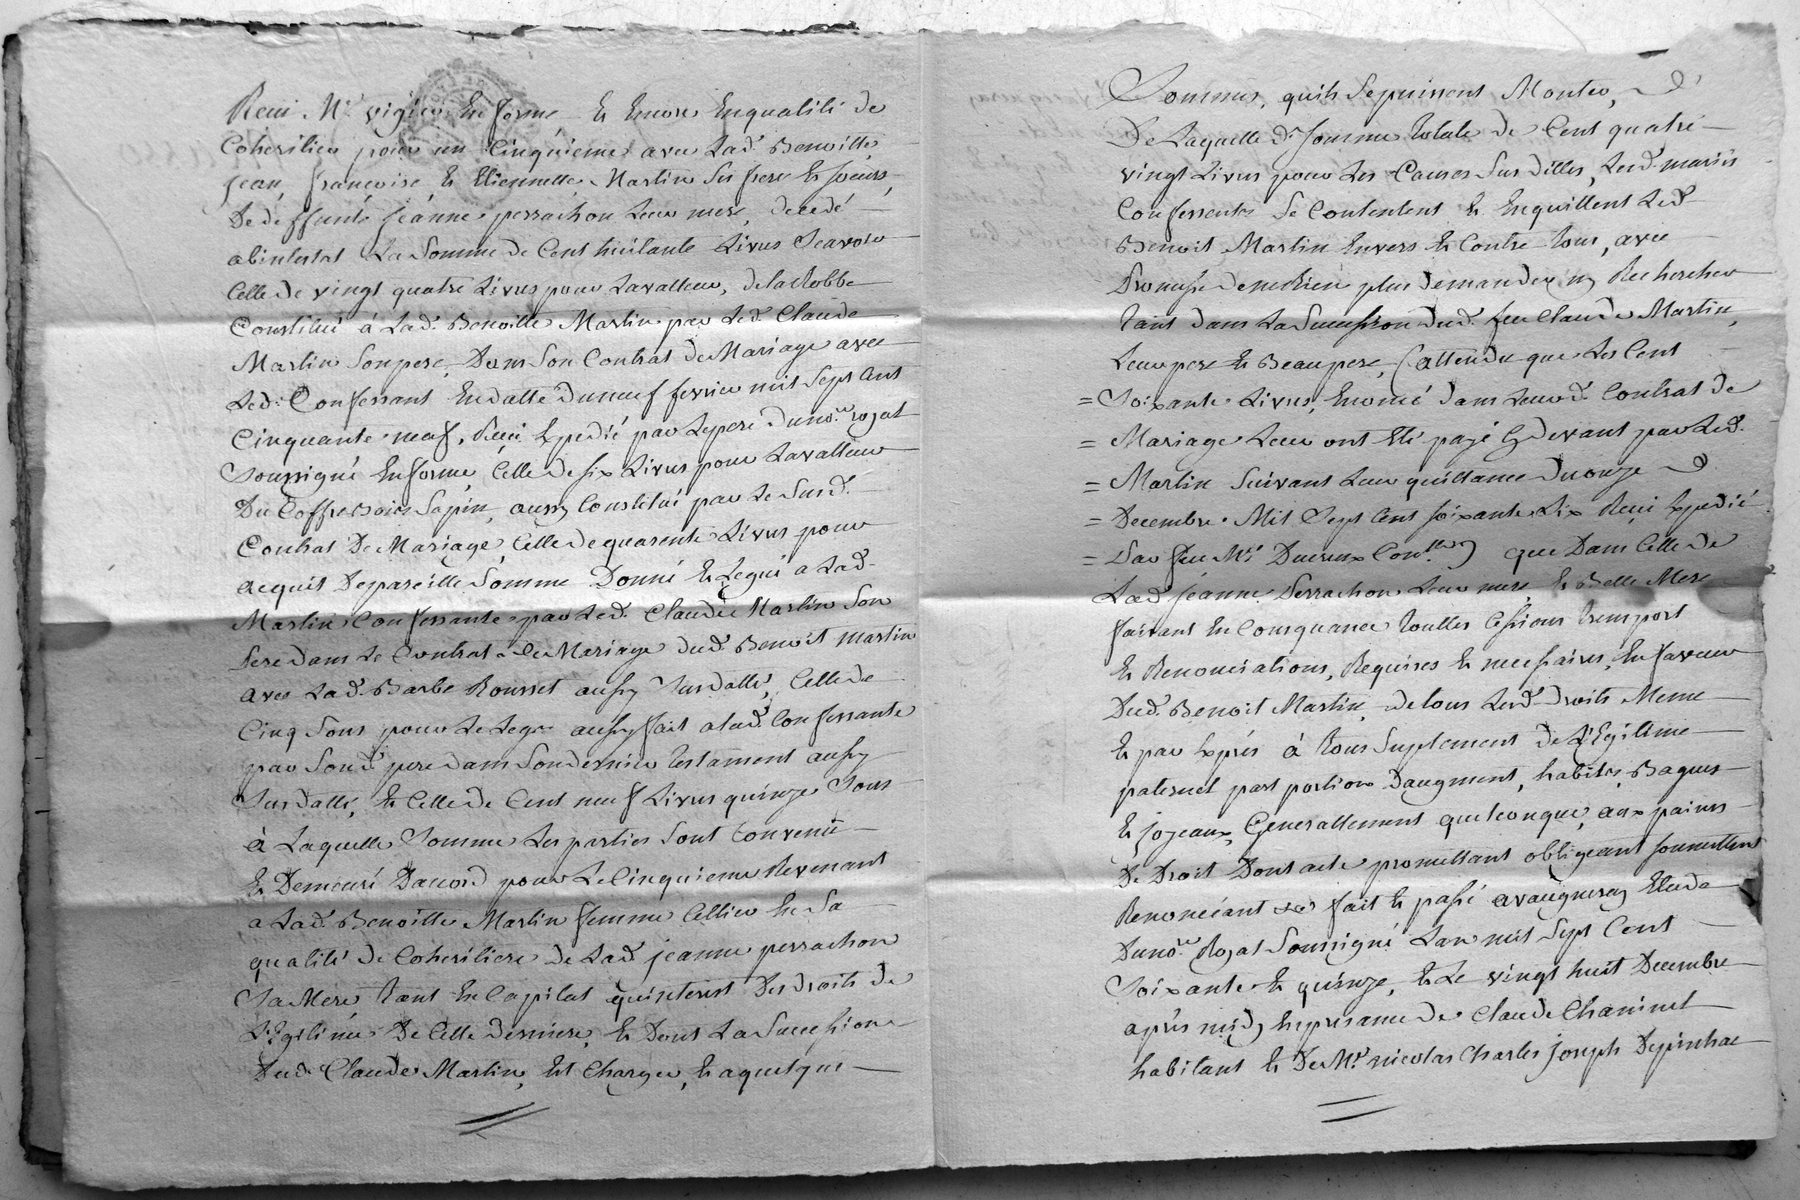 Reçu Mr. vigier En forme Et Encore Enqualité de
Coheritier pour un Cinquieme avec Lad. Benoitte,
jean, françoise, Et Etiennette, Martin Ses frere Et soeurs,
De deffunte jeanne perrachon Leur mere, decedé
abintestat La Somme de Cent huitante Livres Scavoir
Celle de vingt quatre Livres pour Lavalleur, dela Robbe
Constitué à Lad. Benoitte Martin par Led. Claude
Martin Son pere, Dans Son Contrat de Mariage avec
Led. Confessant En datte du neuf fevrier mil Sept Cent
Cinquante neuf, Reçu Expedié par Lepere du nore. royal
Soussigné En forme, Celle de six Livres pour Lavalleur
Du Coffre Bois Sapin, aussy Constitué par Le Susd.
Contrat De Mariage, Celle de quarente Livres pour
acquit De pareille Somme Donné Et Legué a Lad.
Martin Confessante par Led. Claude Martin Son
Pere dans Le Contrat de Mariage dud. Benoit martin
avec Lad. Barbe Rousset aussy Susdatté, Celle de
Cinq Sous pour Le Legs aussy fait a lad. Confessante
par Sond. pere dans Son dernier testament aussy
Susdatté, Et Celle de Cent neuf Livres quinze Sous
à Laquelle Somme Les parties Sont Convenü
Et Demeuré Dacord pour Le Cinquieme Revenant
a Lad. Benoitte Martin femme Cellier En Sa
qualité de Coheritiere de Lad. jeanne perrachon
Sa Mere tant En Capital qu'interest Des droits de
L'Egitime De Cette derniere, Et Dont La Succession
Dud. Claude Martin, Est Chargée, Et a quelque
Sommes, quils Se puissent Monter,
De Laquelle de. Somme totale de Cent quatre
vingt Livres pour Les Causes Sus dittes, Lesd. mariés
Confessents Se Contentent Et Enquittent Led.
Benoit Martin Envers Et Contre tous, avec
Promesse de ne Rien plus demander ny Rechercher
tant dans La Succession dud. feu Claude Martin,
Leur pere Et Beaupere, (attendu que Les Cent
= Soixante Livres, Enoncé dans Leurd. Contrat de
= Mariage Leur ont Eté payé Cy devant par Led.
= Martin Suivant Leur quittance du onze
= Decembre Mil Sept Cent soixante dix Reçu Expedié
= Par feu Mr. Ducreux Conller) que Dans Celle de
Lad. jeanne Perrachon Leur mere, Et Belle Mere
faisant En Consequance touttes Cessions transport
Et Renonciations, Requises Et necessaires, En faveur
Dud. Benoit Martin, de tous Lesd. droits Meme
Et par Exprés à tous Suplement de L'Egitime
paternel part portion Daugment, habits, Bagues
Et joyeaux, Generallement quelconque, aux paines
De Droit Dont acte promettant obligeant soumettant
Renonciant &c. fait Et passé a vaugneray Etude
Du nore. Royal Soussigné L'an mil Sept Cent
Soixante Et quinze, Et Le vingt huit Decembre
aprés midy En presance de Claude Chaninel
habitant Et De Mr. nicolas Charles joseph Depinhac